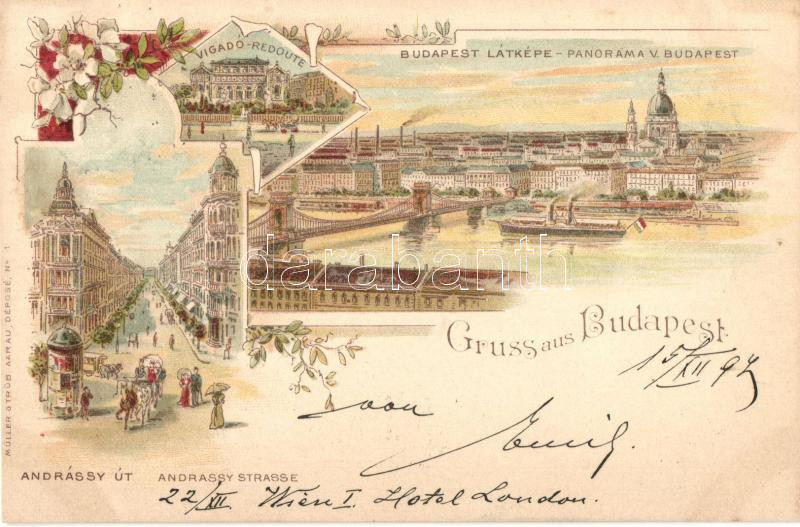 VIGADO-REDOUTE
BUDAPEST LÁTKÉPE - PANORAMA V. BUDAPEST
darabanth
Gruss aus Budapest.
15/XII 97
von
Emil.
ANDRÁSSY ÚT ANDRASSY STRASSE
22/XII. Wien I. Hotel London.
MÜLLER & TRÜB AARAU, DÉPOSÉ, No 1